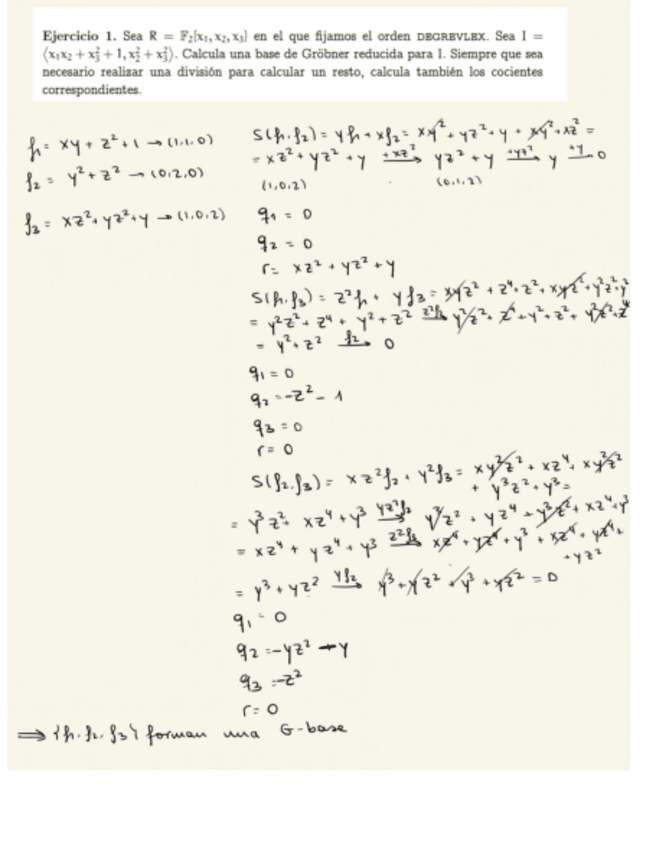 Ejercicio 1. Sea R = 𝔽₂[x₁, x₂, x₃] en el que fijamos el orden DEGREVLEX. Sea I =
⟨x₁x₂ + x₃² + 1, x₂² + x₃²⟩. Calcula una base de Gröbner reducida para I. Siempre que sea
necesario realizar una división para calcular un resto, calcula también los cocientes
correspondientes.
f₁ = xy + z² + 1 → (1,1,0)
f₂ = y² + z² → (0,2,0)
f₃ = xz² + yz² + y → (1,0,2)
S(f₁,f₂) = yf₁ + xf₂ = xy² + yz² + y + xy² + xz² =
= xz² + yz² + y →(+xz²) yz² + y →(+yz²) y →(+y) 0
(1,0,2) (0,1,2)
q₁ = 0
q₂ = 0
r = xz² + yz² + y
S(f₁,f₃) = z²f₁ + yf₃ = xyz² + z⁴ + z² + xyz² + y²z² + y²
= y²z² + z⁴ + y² + z² →(z²f₂) y²z² + z⁴ + y² + z² + y²z² + z⁴
= y² + z² →(f₂) 0
q₁ = 0
q₂ = -z² - 1
q₃ = 0
r = 0
S(f₂,f₃) = xz²f₂ + y²f₃ = xy²z² + xz⁴ + xy²z²
+ y³z² + y³ =
= y³z² + xz⁴ + y³ →(yz²f₂) y³z² + yz⁴ + y³z² + xz⁴ + y³
= xz⁴ + yz⁴ + y³ →(z²f₃) xz⁴ + yz⁴ + y³ + xz⁴ + yz⁴ +
+ yz²
= y³ + yz² →(yf₂) y³ + yz² + y³ + yz² = 0
q₁ = 0
q₂ = -yz² - y
q₃ = -z²
r = 0
⟹ {f₁, f₂, f₃} forman una G-base